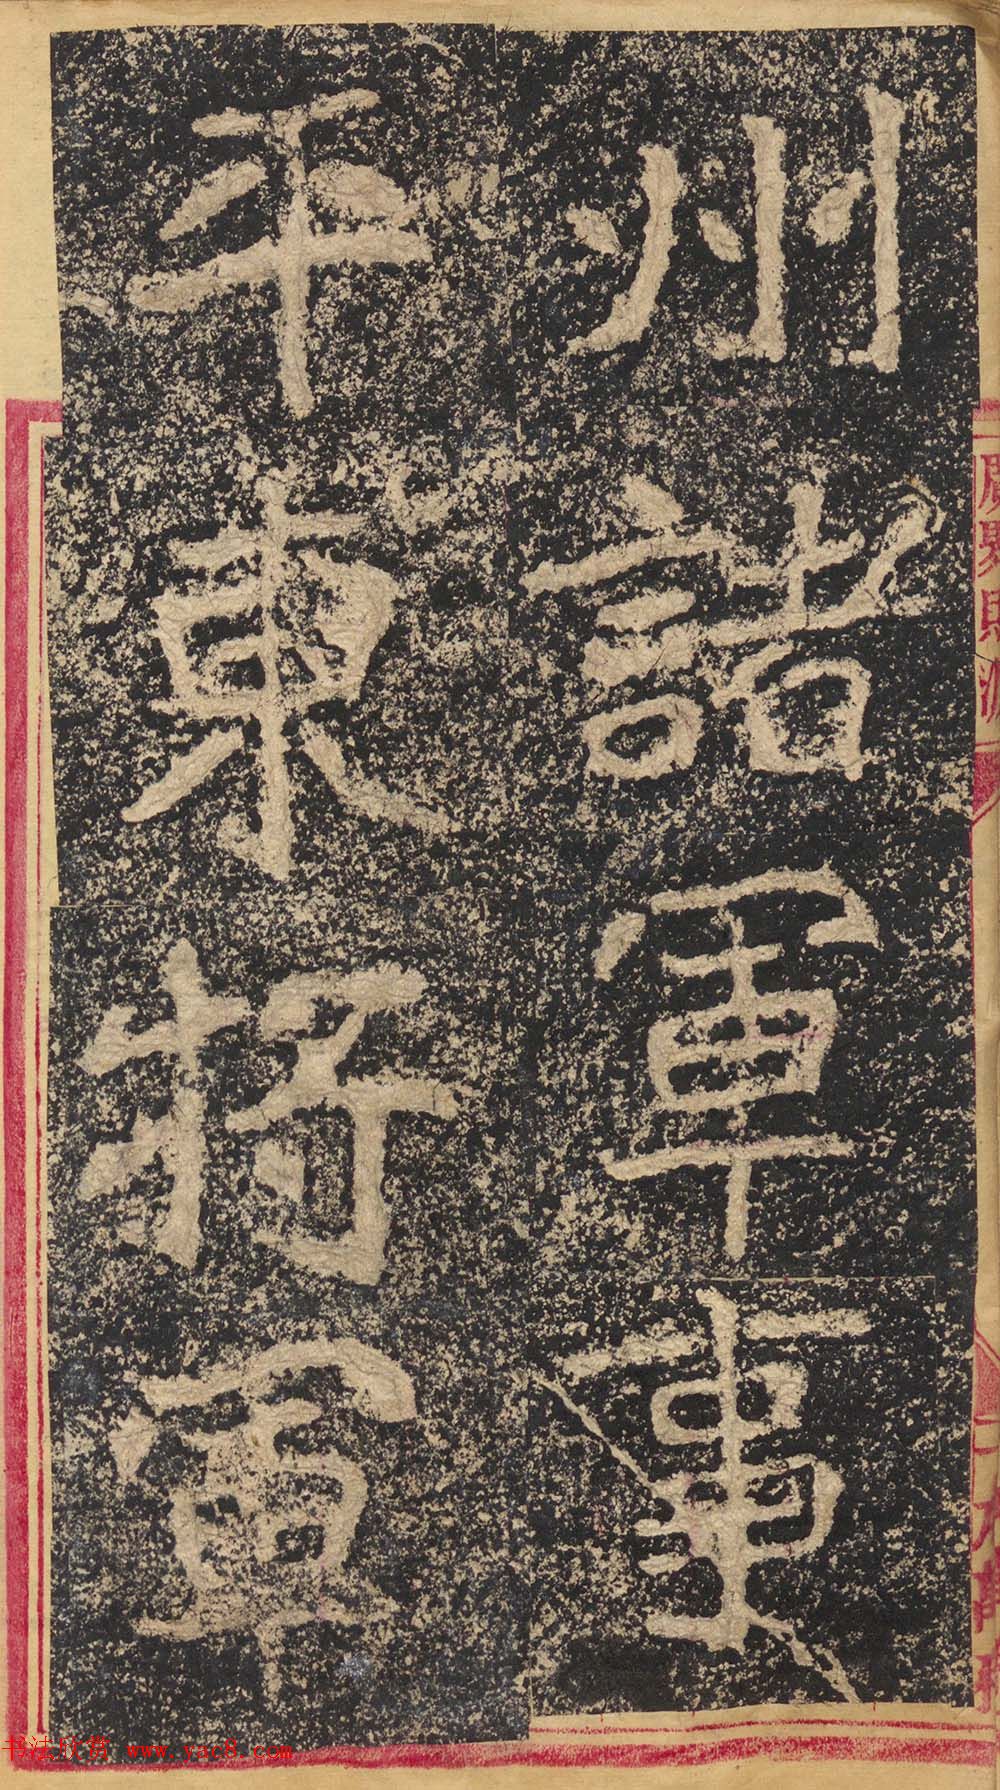 州諸軍事
平東将軍
书法欣赏 www.yac8.com